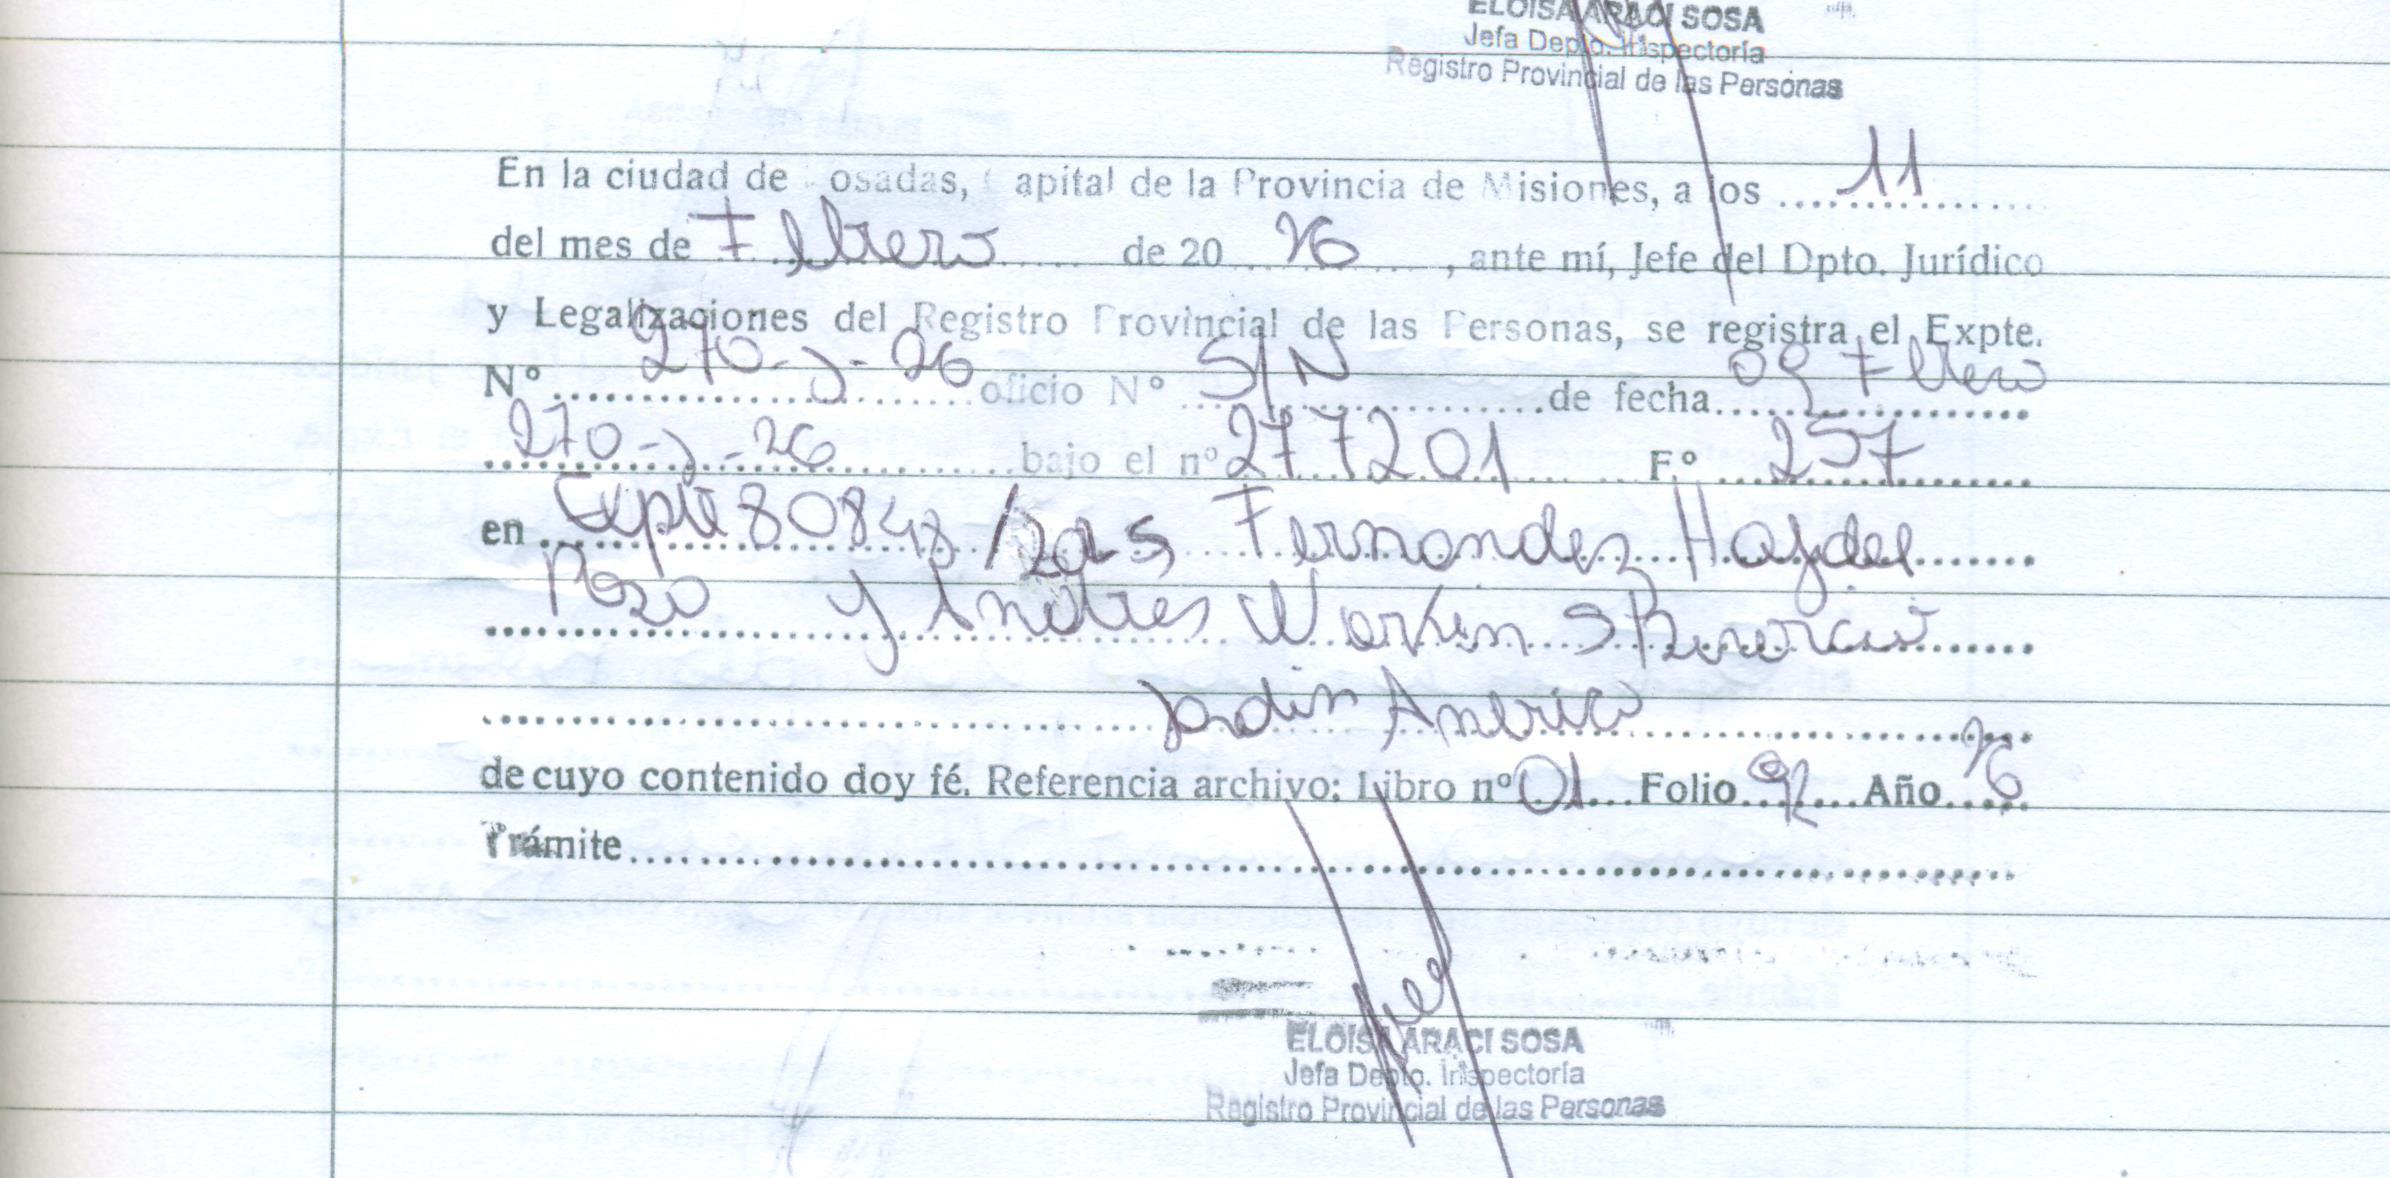 ELOISA ARACI SOSA
Jefa Depto. Inspectoría
Registro Provincial de las Personas
En la ciudad de Posadas, Capital de la Provincia de Misiones, a los 11
del mes de Febrero de 20 26, ante mí, Jefe del Dpto. Jurídico
y Legalizaciones del Registro Provincial de las Personas, se registra el Expte.
Nº 270-J-26 oficio Nº S/N de fecha 09 Febrero
270-J-26 bajo el nº 277201 Fº 257
en Expte 80848/2025 Fernandez Haydee
Rosa y Andres
Jardin America
de cuyo contenido doy fé. Referencia archivo: Libro nº 01 Folio 92 Año 26
Trámite
ELOISA ARACI SOSA
Jefa Depto. Inspectoría
Registro Provincial de las Personas